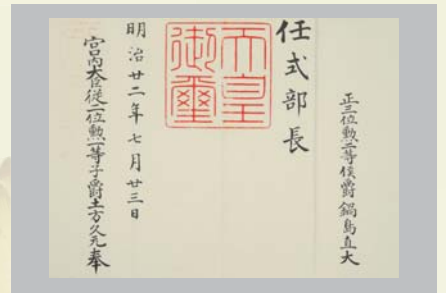 正三位勲二等侯爵鍋島直大
任式部長
天皇御璽
明治廿二年七月廿三日
宮内大臣從二位勲一等子爵土方久元奉